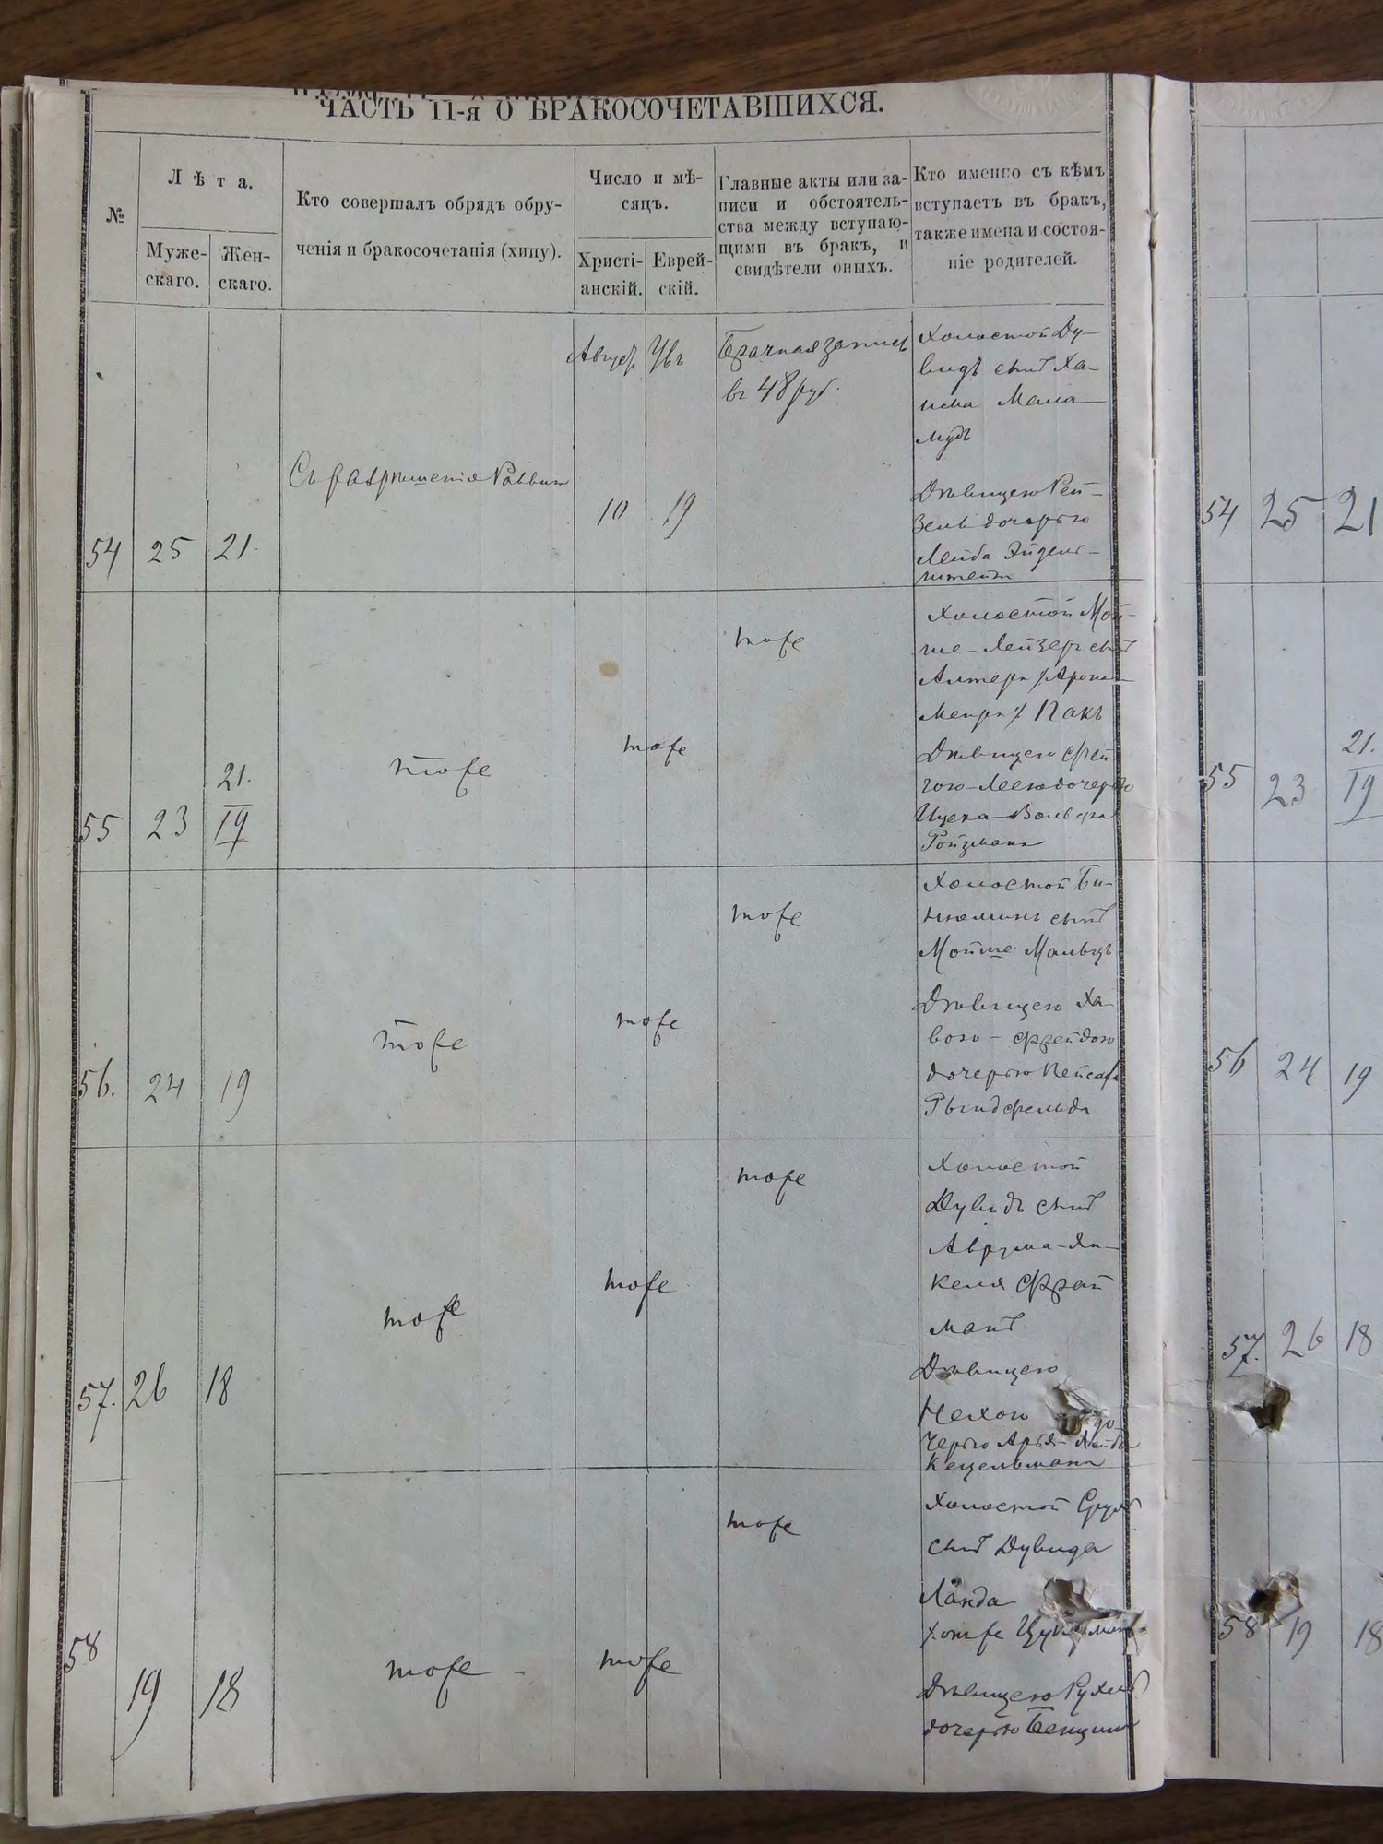 ЧАСТЬ II-я О БРАКОСОЧЕТАВШИХСЯ.
№
Лѣта.
Муже-
скаго.
Жен-
скаго.
Кто совершалъ обрядъ обру-
ченія и бракосочетанія (хупу).
Число и мѣ-
сяцъ.
Христі-
анскій.
Еврей-
скій.
Главные акты или за-
писи и обстоятель-
ства между вступаю-
щими въ бракъ, и
свидѣтели оныхъ.
Кто именно съ кѣмъ
вступаетъ въ бракъ,
также имена и состоя-
ніе родителей.
54
25
21.
Съ разрѣшенія Раввин
Август
10
19
Брачная запись
въ 48 руб.
Холостой Ду-
видъ сынъ Ха-
има Мала-
мудъ
Дѣвицею Рей-
зель дочерью
Лейба Эйдель-
штейн
55
23
21.
19
тоже
тоже
тоже
Холостой Мой-
ше-Лейзеръ сынъ
Алтера /Арона-
Меира/ Пакъ
Дѣвицею Фей
гою-Леею дочерью
Ицека-Вольфа
Ройзмана
56.
24
19
тоже
тоже
тоже
Холостой Би-
ньоминъ сынъ
Мойше Мальцъ
Дѣвицею Ха-
вою-Фрейдою
дочерью Пейсаха
57.
26
18
тоже
тоже
тоже
Холостой
Дувидъ сынъ
Аврума-Ян-
келя Фрай
манъ
Дѣвицею
Нехою до-
черью Арья-Лейба
Кецельмана
58
19
18
тоже
тоже
тоже
Холостой Сруль
сынъ Дувида
Ланда
Дѣвицею Рухль
дочерью Бенциона
54 25 21
55 23 21.
19
56 24 19
57. 26 18
58 19 18